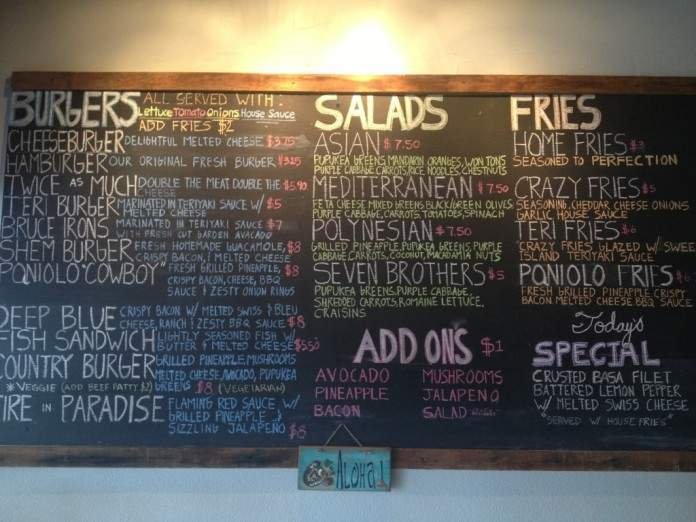 BURGERS
ALL SERVED WITH:
Lettuce Tomato Onions House Sauce
ADD FRIES $2
CHEESEBURGER DELIGHTFUL MELTED CHEESE $3.75
HAMBURGER OUR ORIGINAL FRESH BURGER
TWICE AS MUCH DOUBLE THE MEAT DOUBLE THE CHEESE
TERI BURGER MARINATED IN TERIYAKI SAUCE W/ $5
MELTED CHEESE
BRUCE IRONS MARINATED IN TERIYAKI SAUCE $7
WITH FRESH CUT GARDEN AVACADO
SHEM BURGER FRESH HOMEMADE GUACAMOLE, $8
CRISPY BACON, MELTED CHEESE
PONIOLO "COWBOY" FRESH GRILLED PINEAPPLE, $8
CRISPY BACON, CHEESE, BBQ
SAUCE & ZESTY ONION RINGS
DEEP BLUE CRISPY BACON W/ MELTED SWISS & BLEU
CHEESE, RANCH & ZESTY BBQ SAUCE $8
FISH SANDWICH LIGHTLY SEASONED FISH W/
BUTTER & MELTED CHEESE $5.50
COUNTRY BURGER GRILLED PINEAPPLE, MUSHROOMS
MELTED CHEESE, AVOCADO, PUPUKEA
*VEGGIE (ADD BEEF PATTY $2) GREENS $8 (VEGETARIAN)
FIRE IN PARADISE FLAMING RED SAUCE W/
GRILLED PINEAPPLE &
SIZZLING JALAPEÑO $8
SALADS
ASIAN $7.50
PUPUKEA GREENS, MANDARIN ORANGES, WON TONS
PURPLE CABBAGE, CARROTS, RICE NOODLES, CHESTNUTS
MEDITERRANEAN $7.50
FETA CHEESE MIXED GREENS BLACK/GREEN OLIVES
PURPLE CABBAGE, CARROTS, TOMATOES, SPINACH
POLYNESIAN $7.50
GRILLED PINEAPPLE, PUPUKEA GREENS, PURPLE
CABBAGE CARROTS, COCONUT, MACADAMIA NUTS
SEVEN BROTHERS $5
PUPUKEA GREENS, PURPLE CABBAGE,
SHREDDED CARROTS, ROMAINE LETTUCE,
CRAISINS
ADD ONS $1
AVOCADO MUSHROOMS
PINEAPPLE JALAPENO
BACON SALAD
FRIES
HOME FRIES $3
SEASONED TO PERFECTION
CRAZY FRIES $5
SEASONING, CHEDDAR CHEESE ONIONS
GARLIC HOUSE SAUCE
TERI FRIES $6
"CRAZY FRIES GLAZED W/ SWEET
ISLAND TERIYAKI SAUCE"
PONIOLO FRIES $6
FRESH GRILLED PINEAPPLE CRISPY
BACON MELTED CHEESE BBQ SAUCE
Today's
SPECIAL
CRUSTED BASA FILET
BATTERED LEMON PEPPER
W/ MELTED SWISS CHEESE
"SERVED W/ HOUSE FRIES"
ALOHA!